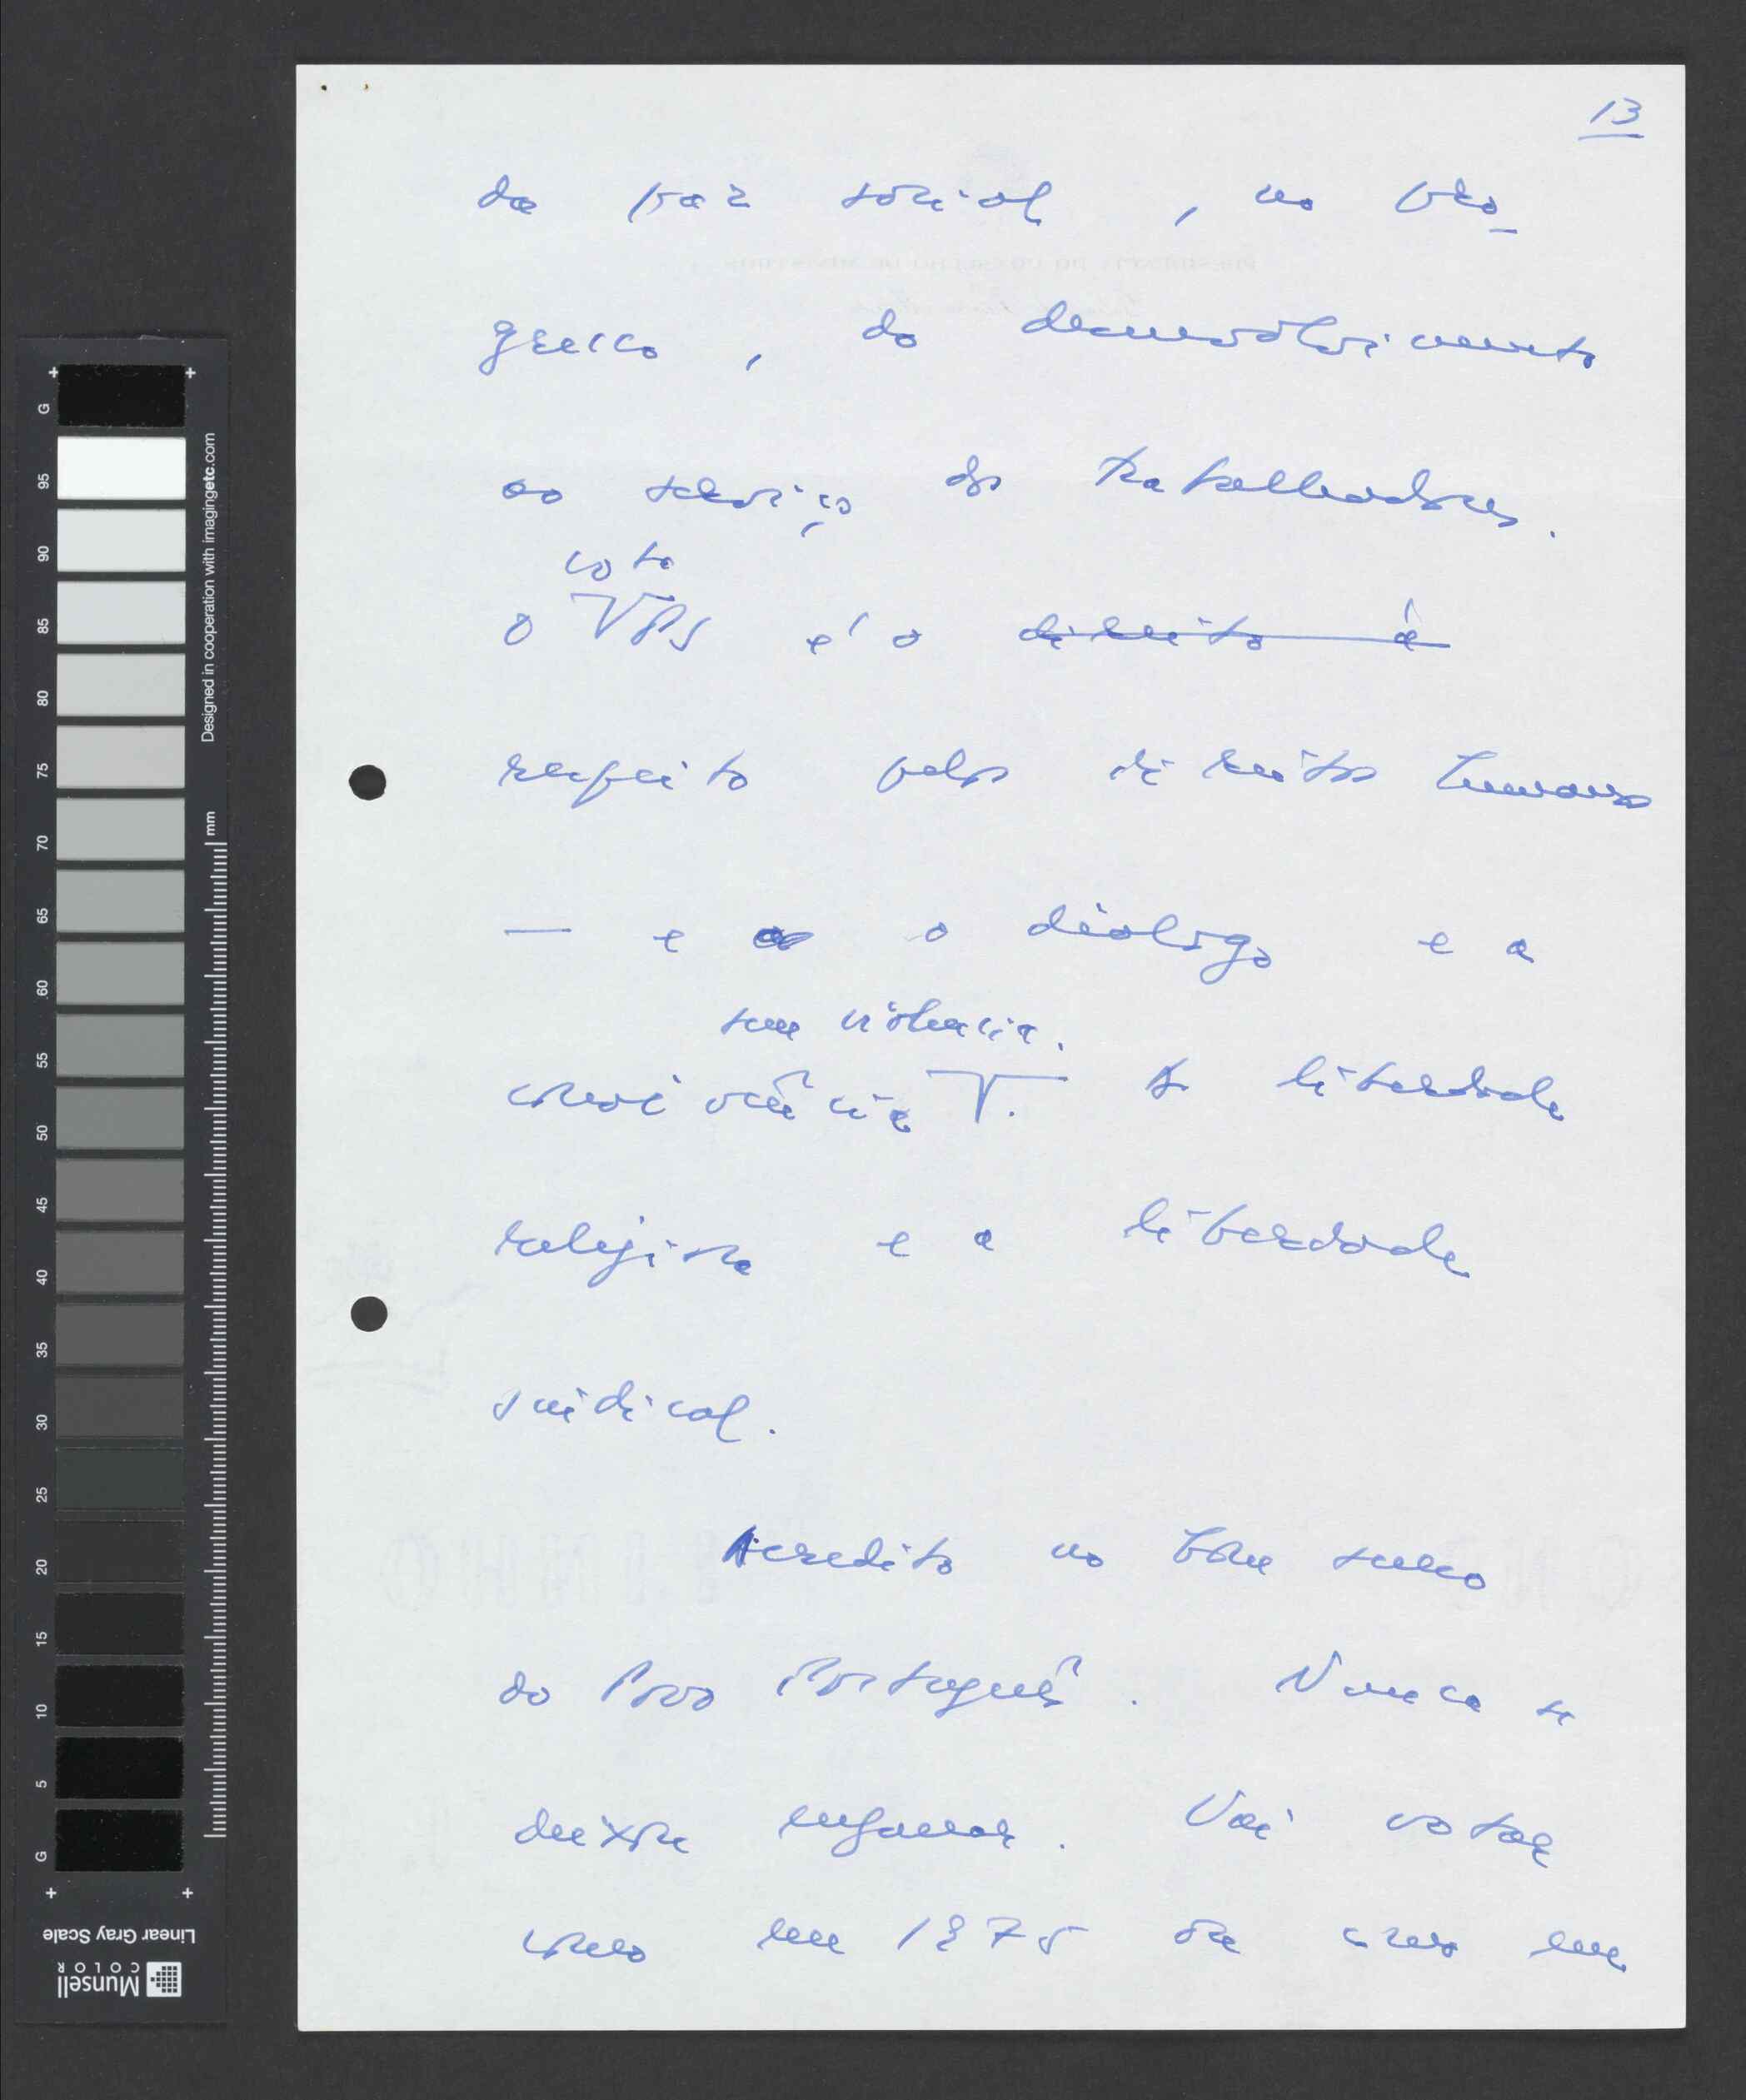 13
da paz social, no pro-
gresso, do desenvolvimento
ao serviço dos trabalhadores.
voto
O PS é o direito à
respeito pelos direitos humanos
— e o diálogo e a
sem violência.
convivência. A liberdade
religiosa e a liberdade
sindical.
Acredito no bom senso
do Povo Português. Nunca se
deixou enganar. Vai votar
como em 1975 ou como em
G 95 90 85 80 75 70 65 60 55 50 45 40 35 30 25 20 15 10 5 G
mm
Designed in cooperation with imagingetc.com
Munsell
COLOR
Linear Gray Scale